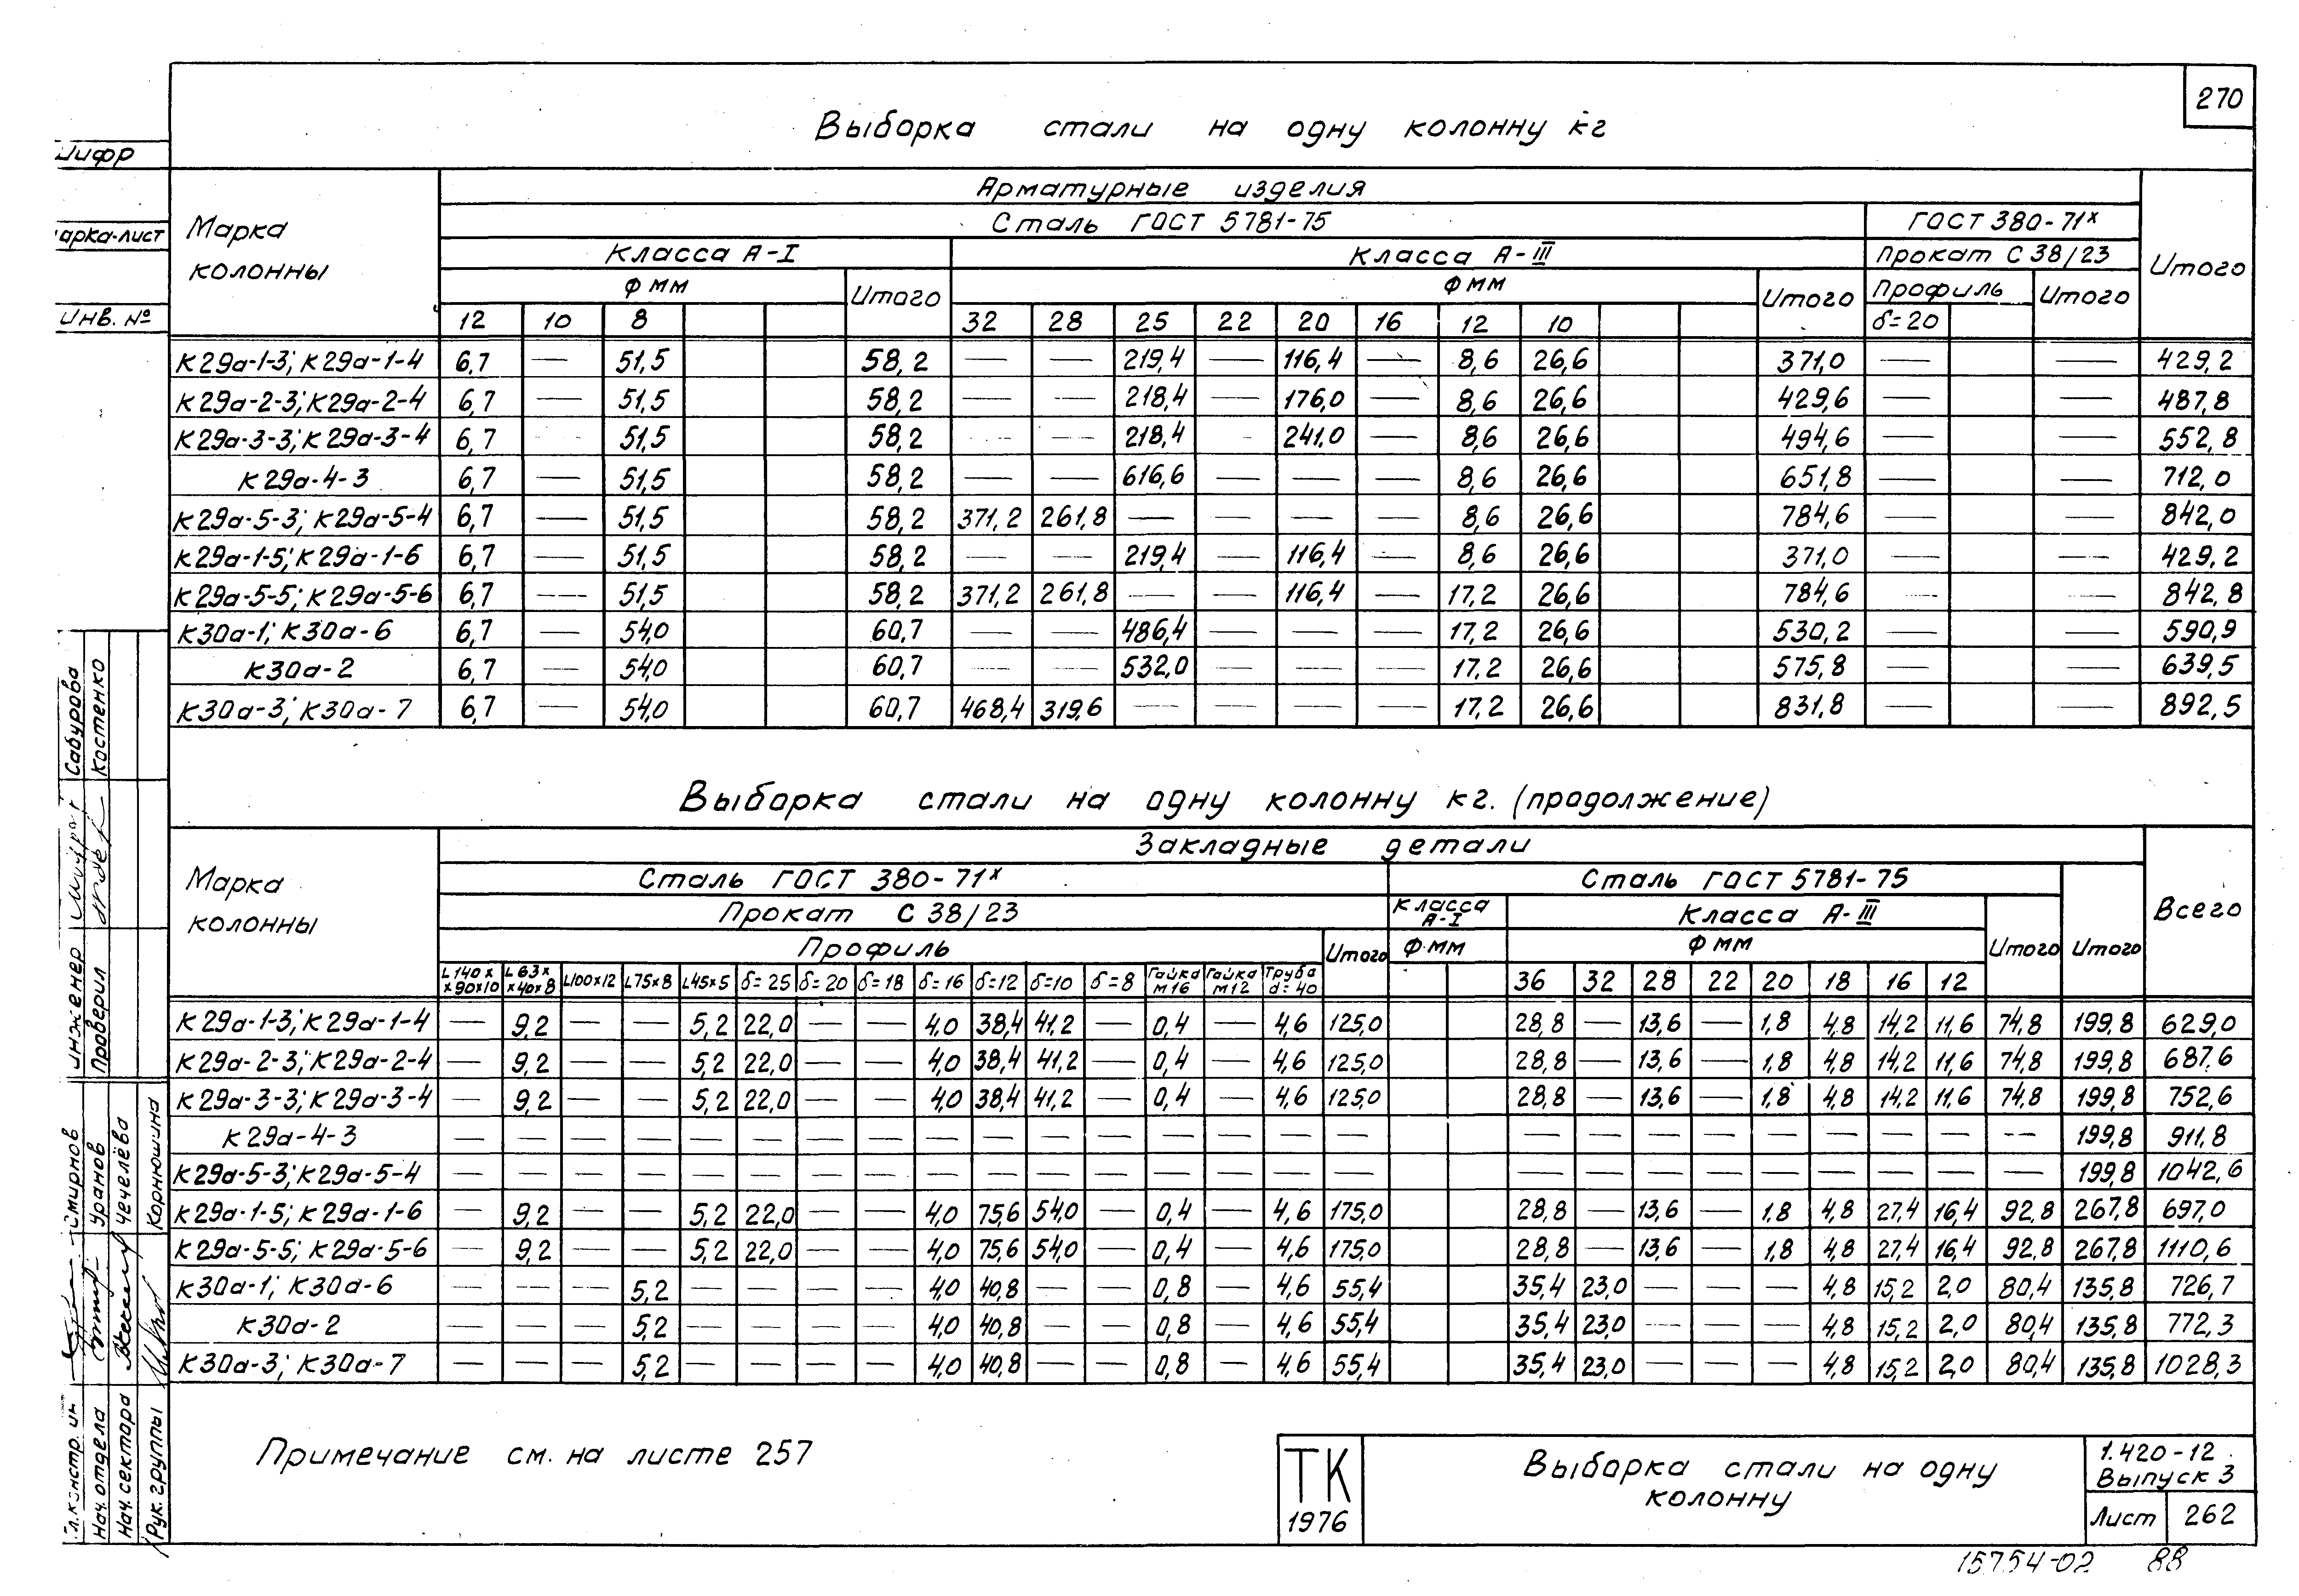 270
Выборка стали на одну колонну кг
Марка колонны
Арматурные изделия
Итого
Сталь ГОСТ 5781-75
ГОСТ 380-71х
Класса А-I
Класса А-III
Прокат С 38/23
Ф мм
Итого
Ф мм
Итого
Профиль
Итого
12 10 8 32 28 25 22 20 16 12 10 δ=20
К29а-1-3; К29а-1-4 6,7 — 51,5 58,2 — — 219,4 — 116,4 — 8,6 26,6 371,0 — — 429,2
К29а-2-3; К29а-2-4 6,7 — 51,5 58,2 — — 218,4 — 176,0 — 8,6 26,6 429,6 — — 487,8
К29а-3-3; К29а-3-4 6,7 — 51,5 58,2 — — 218,4 - 241,0 — 8,6 26,6 494,6 — — 552,8
К29а-4-3 6,7 — 51,5 58,2 — — 616,6 — — — 8,6 26,6 651,8 — — 712,0
К29а-5-3; К29а-5-4 6,7 — 51,5 58,2 371,2 261,8 — — — — 8,6 26,6 784,6 — — 842,0
К29а-1-5; К29а-1-6 6,7 — 51,5 58,2 — — 219,4 — 116,4 — 8,6 26,6 371,0 — — 429,2
К29а-5-5; К29а-5-6 6,7 — 51,5 58,2 371,2 261,8 — — 116,4 — 17,2 26,6 784,6 — — 842,8
К30а-1; К30а-6 6,7 — 54,0 60,7 — — 486,4 — — — 17,2 26,6 530,2 — — 590,9
К30а-2 6,7 — 54,0 60,7 — — 532,0 — — — 17,2 26,6 575,8 — — 639,5
К30а-3; К30а-7 6,7 — 54,0 60,7 468,4 319,6 — — — — 17,2 26,6 831,8 — — 892,5
Выборка стали на одну колонну кг. (продолжение)
Марка колонны
Закладные детали
Всего
Сталь ГОСТ 380-71х
Сталь ГОСТ 5781-75
Итого
Прокат С 38/23
Класса А-I
Класса А-III
Итого
Профиль
Итого
Ф мм
Ф мм
L140х х90х10 L63х х40х8 L100х12 L75х8 L45х5 δ=25 δ=20 δ=18 δ=16 δ=12 δ=10 δ=8 Гайка М16 Гайка М12 Труба d=40 36 32 28 22 20 18 16 12
К29а-1-3; К29а-1-4 — 9,2 — — 5,2 22,0 — — 4,0 38,4 41,2 — 0,4 — 4,6 125,0 28,8 — 13,6 — 1,8 4,8 14,2 11,6 74,8 199,8 629,0
К29а-2-3; К29а-2-4 — 9,2 — — 5,2 22,0 — — 4,0 38,4 41,2 — 0,4 — 4,6 125,0 28,8 — 13,6 — 1,8 4,8 14,2 11,6 74,8 199,8 687,6
К29а-3-3; К29а-3-4 — 9,2 — — 5,2 22,0 — — 4,0 38,4 41,2 — 0,4 — 4,6 125,0 28,8 — 13,6 — 1,8 4,8 14,2 11,6 74,8 199,8 752,6
К29а-4-3 — — — — — — — — — — — — — — — — — — — — — — — — — 199,8 911,8
К29а-5-3; К29а-5-4 — — — — — — — — — — — — — — — — — — — — — — — — — 199,8 1042,6
К29а-1-5; К29а-1-6 — 9,2 — — 5,2 22,0 — — 4,0 75,6 54,0 — 0,4 — 4,6 175,0 28,8 — 13,6 — 1,8 4,8 27,4 16,4 92,8 267,8 697,0
К29а-5-5; К29а-5-6 — 9,2 — — 5,2 22,0 — — 4,0 75,6 54,0 — 0,4 — 4,6 175,0 28,8 — 13,6 — 1,8 4,8 27,4 16,4 92,8 267,8 1110,6
К30а-1; К30а-6 — — — 5,2 — — — — 4,0 40,8 — — 0,8 — 4,6 55,4 35,4 23,0 — — — 4,8 15,2 2,0 80,4 135,8 726,7
К30а-2 — — — 5,2 — — — — 4,0 40,8 — — 0,8 — 4,6 55,4 35,4 23,0 — — — 4,8 15,2 2,0 80,4 135,8 772,3
К30а-3; К30а-7 — — — 5,2 — — — — 4,0 40,8 — — 0,8 — 4,6 55,4 35,4 23,0 — — — 4,8 15,2 2,0 80,4 135,8 1028,3
Примечание см. на листе 257
ТК
1976
Выборка стали на одну
колонну
1.420-12
Выпуск 3
Лист 262
15754-02 88
Шифр
арка-лист
Инв. №
инженер Сабурова
Проверил Костенко
Гл.констр. ин Смирнов
Нач. отдела Уранов
Нач. сектора Чечелёва
Рук. группы Корнюшина